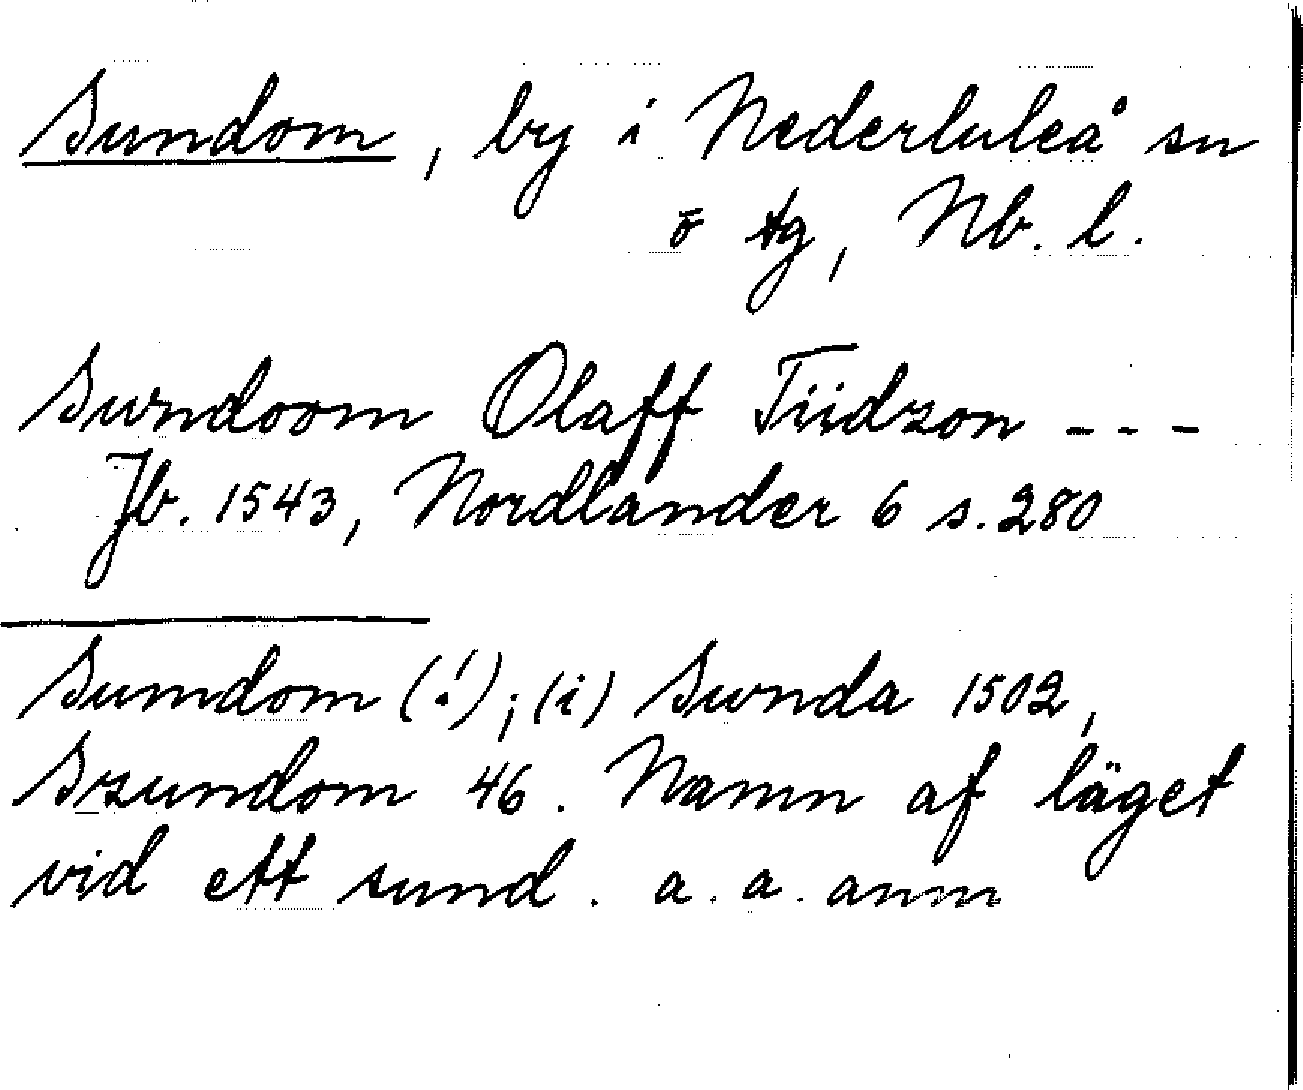 Sundom, by i Nederluleå sn
o tg, Nb. l.
Surndoom Olaff Tiidzon ---
Jb. 1543, Nordlander 6 s. 280
Sumdom (!); (i) Swnda 1502,
Szundom 46. Namn af läget
vid ett sund. a. a. anm